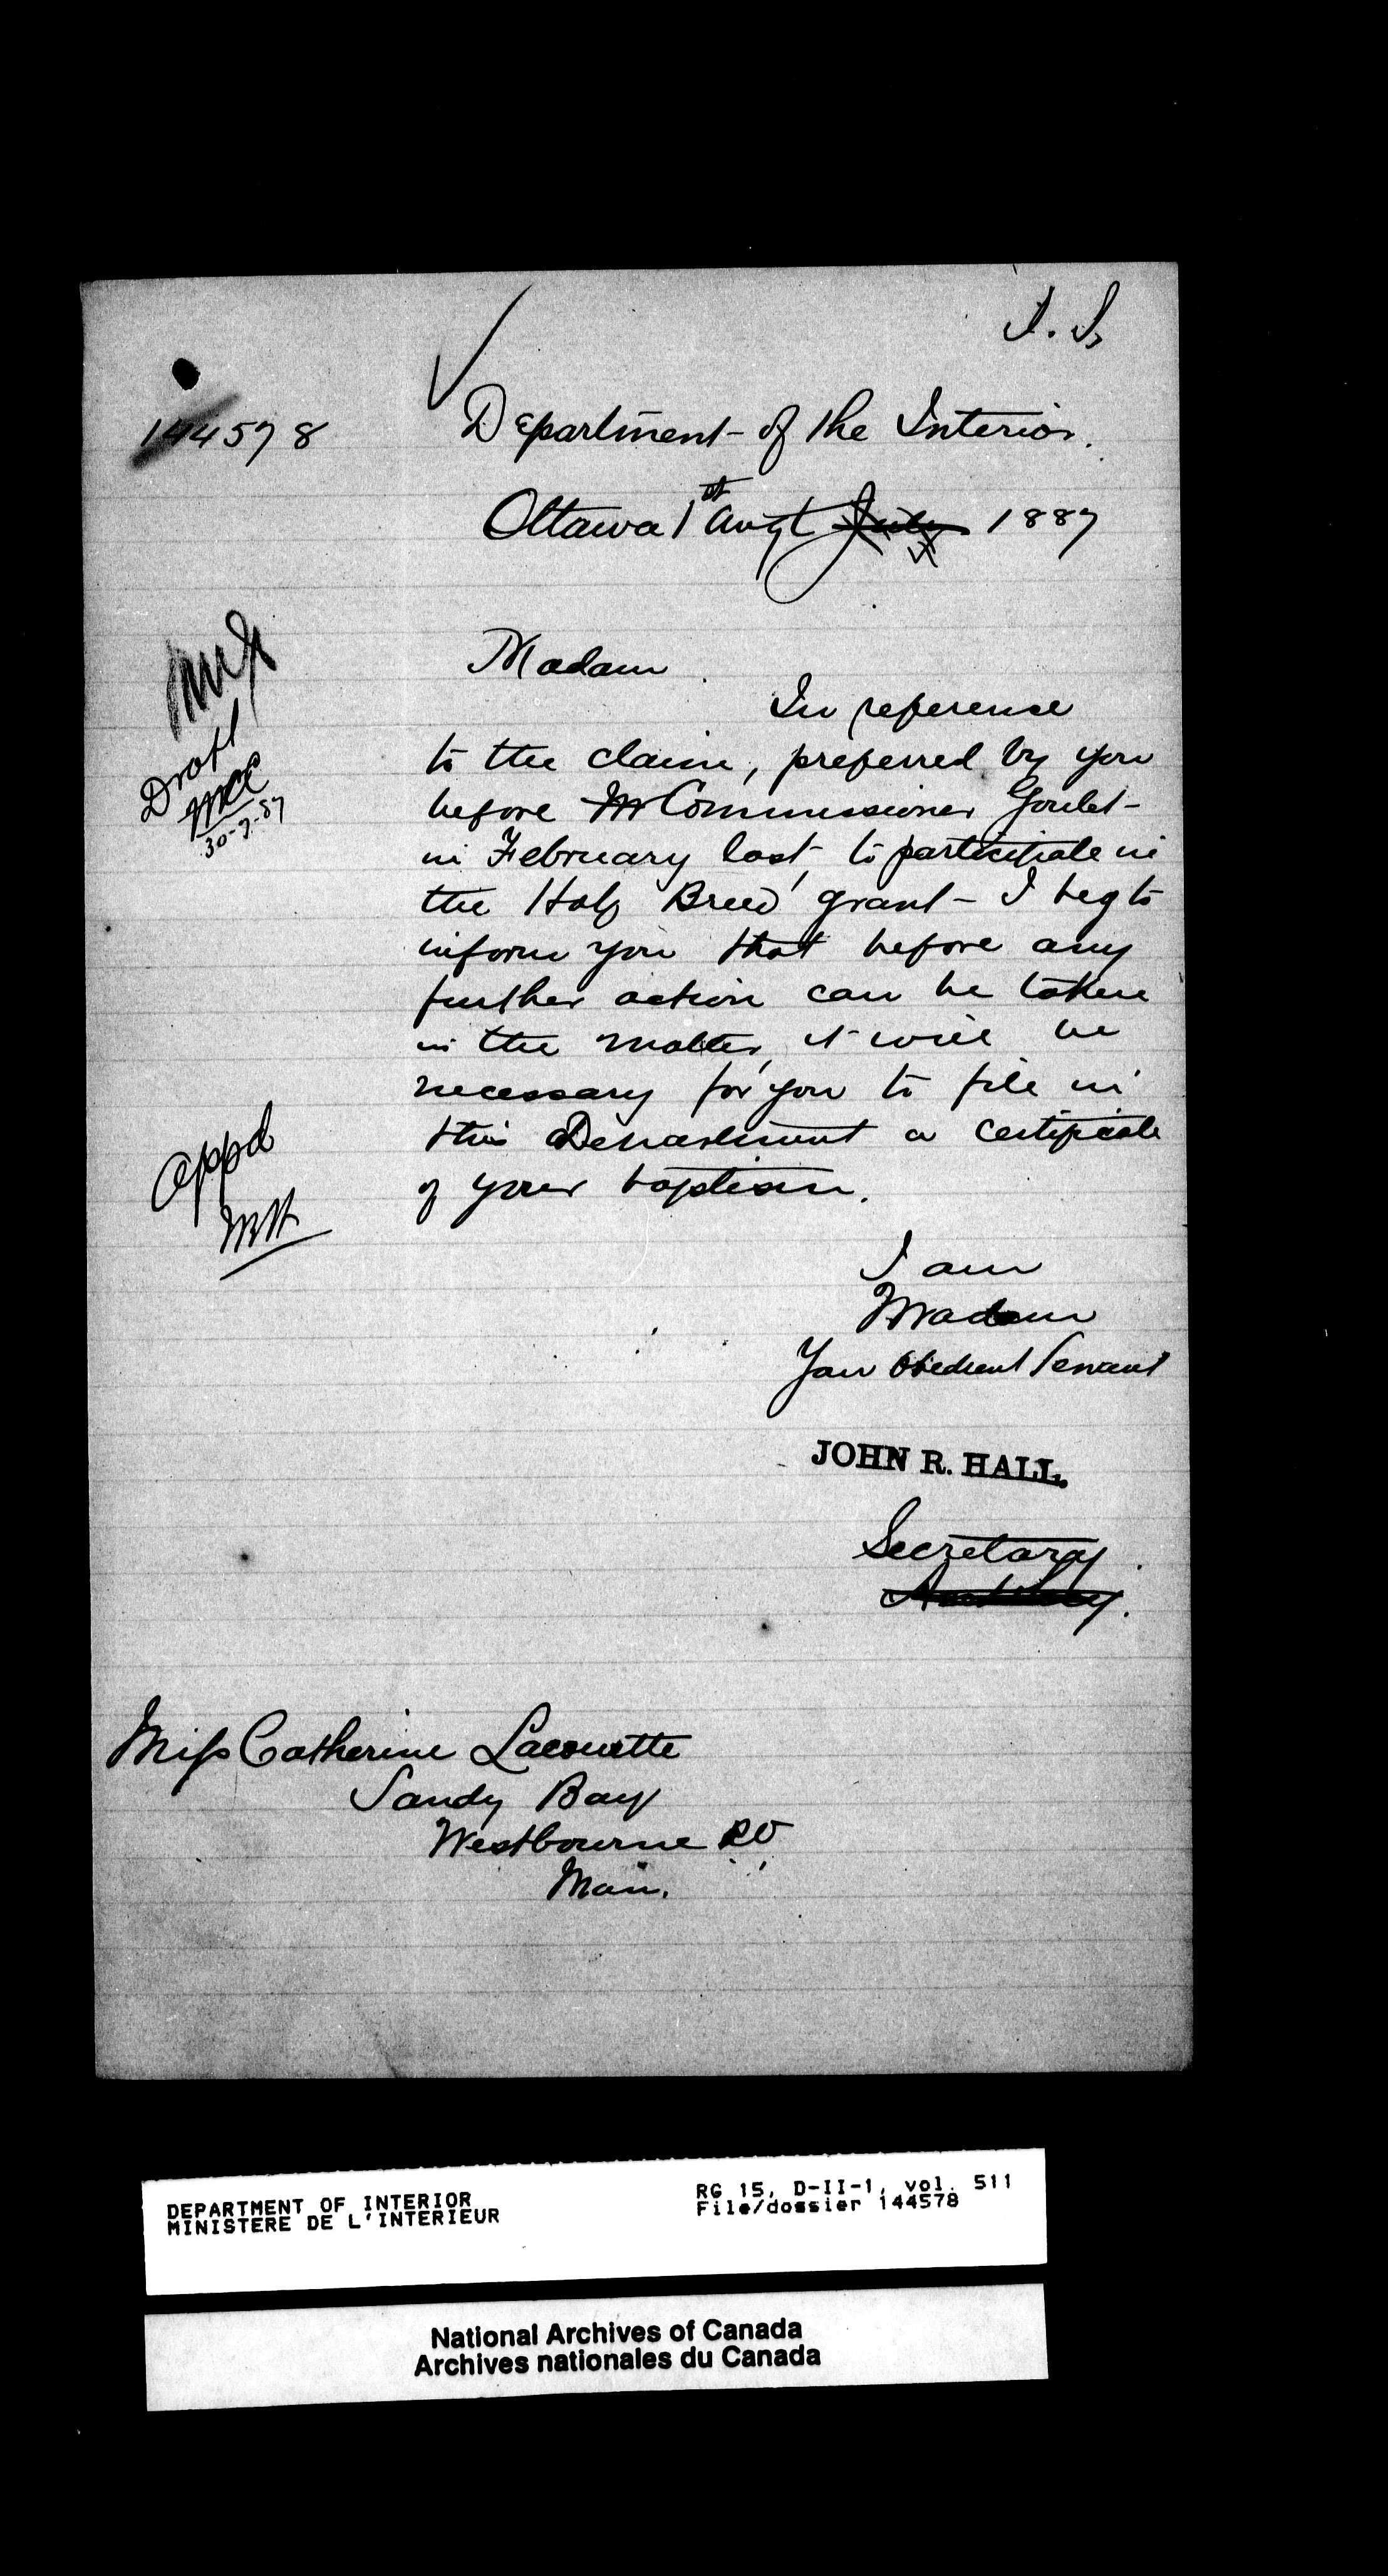 144578
Department of the Interior.
Ottawa 1st Augt July 1887
Draft
30-7-87
Madam
In reference
to the claim, preferred by you
before Mr Commissioner Goulet
in February last, to participate in
the Half Breed grant - I beg to
inform you that before any
further action can be taken
in the matter, it will be
necessary for you to file in
this Department a certificate
of your baptism.
Appd
I am
Madam
Your Obedient Servant
JOHN R. HALL.
Secretary
Miss Catherine Lacouette
Sandy Bay
Westbourne P.O.
Man.
DEPARTMENT OF INTERIOR
MINISTERE DE L'INTERIEUR
RG 15, D-II-1, vol. 511
File/dossier 144578
National Archives of Canada
Archives nationales du Canada